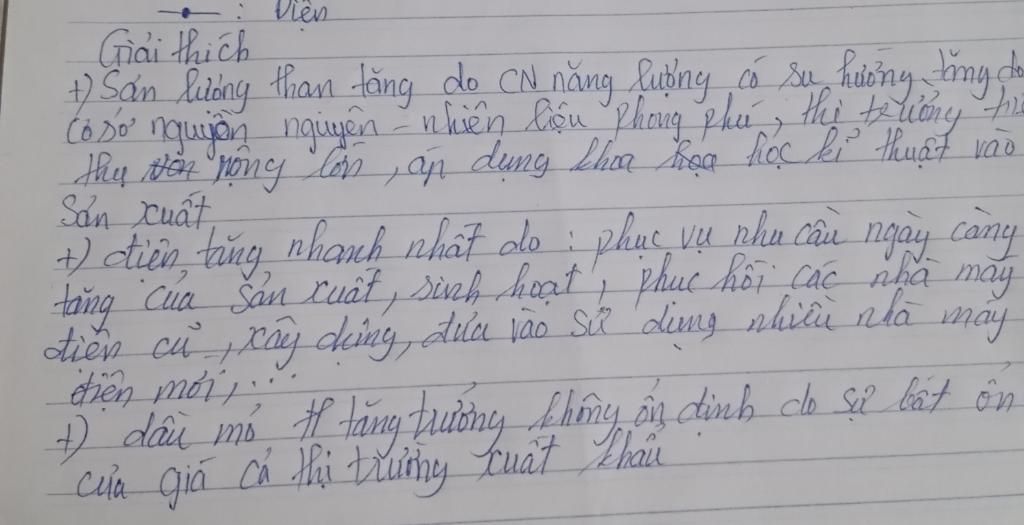 : Điện
Giải thích
+) Sản lượng than tăng do CN năng lượng có xu hướng tăng do
có sơ nguyồn nguyên - nhiên liệu phong phú, thị trường tiê
thụ rộng lớn, áp dụng khoa học kĩ thuật vào
sản xuất
+) điện tăng nhanh nhất do : phục vụ nhu cầu ngày càng
tăng của sản xuất, sinh hoạt, phục hồi các nhà máy
điện cũ, xây dựng, đưa vào sử dụng nhiều nhà máy
điện mới, ...
+) dầu mỏ tăng trưởng không ổn định do sự bất ổn
của giá cả thị trường xuất khẩu